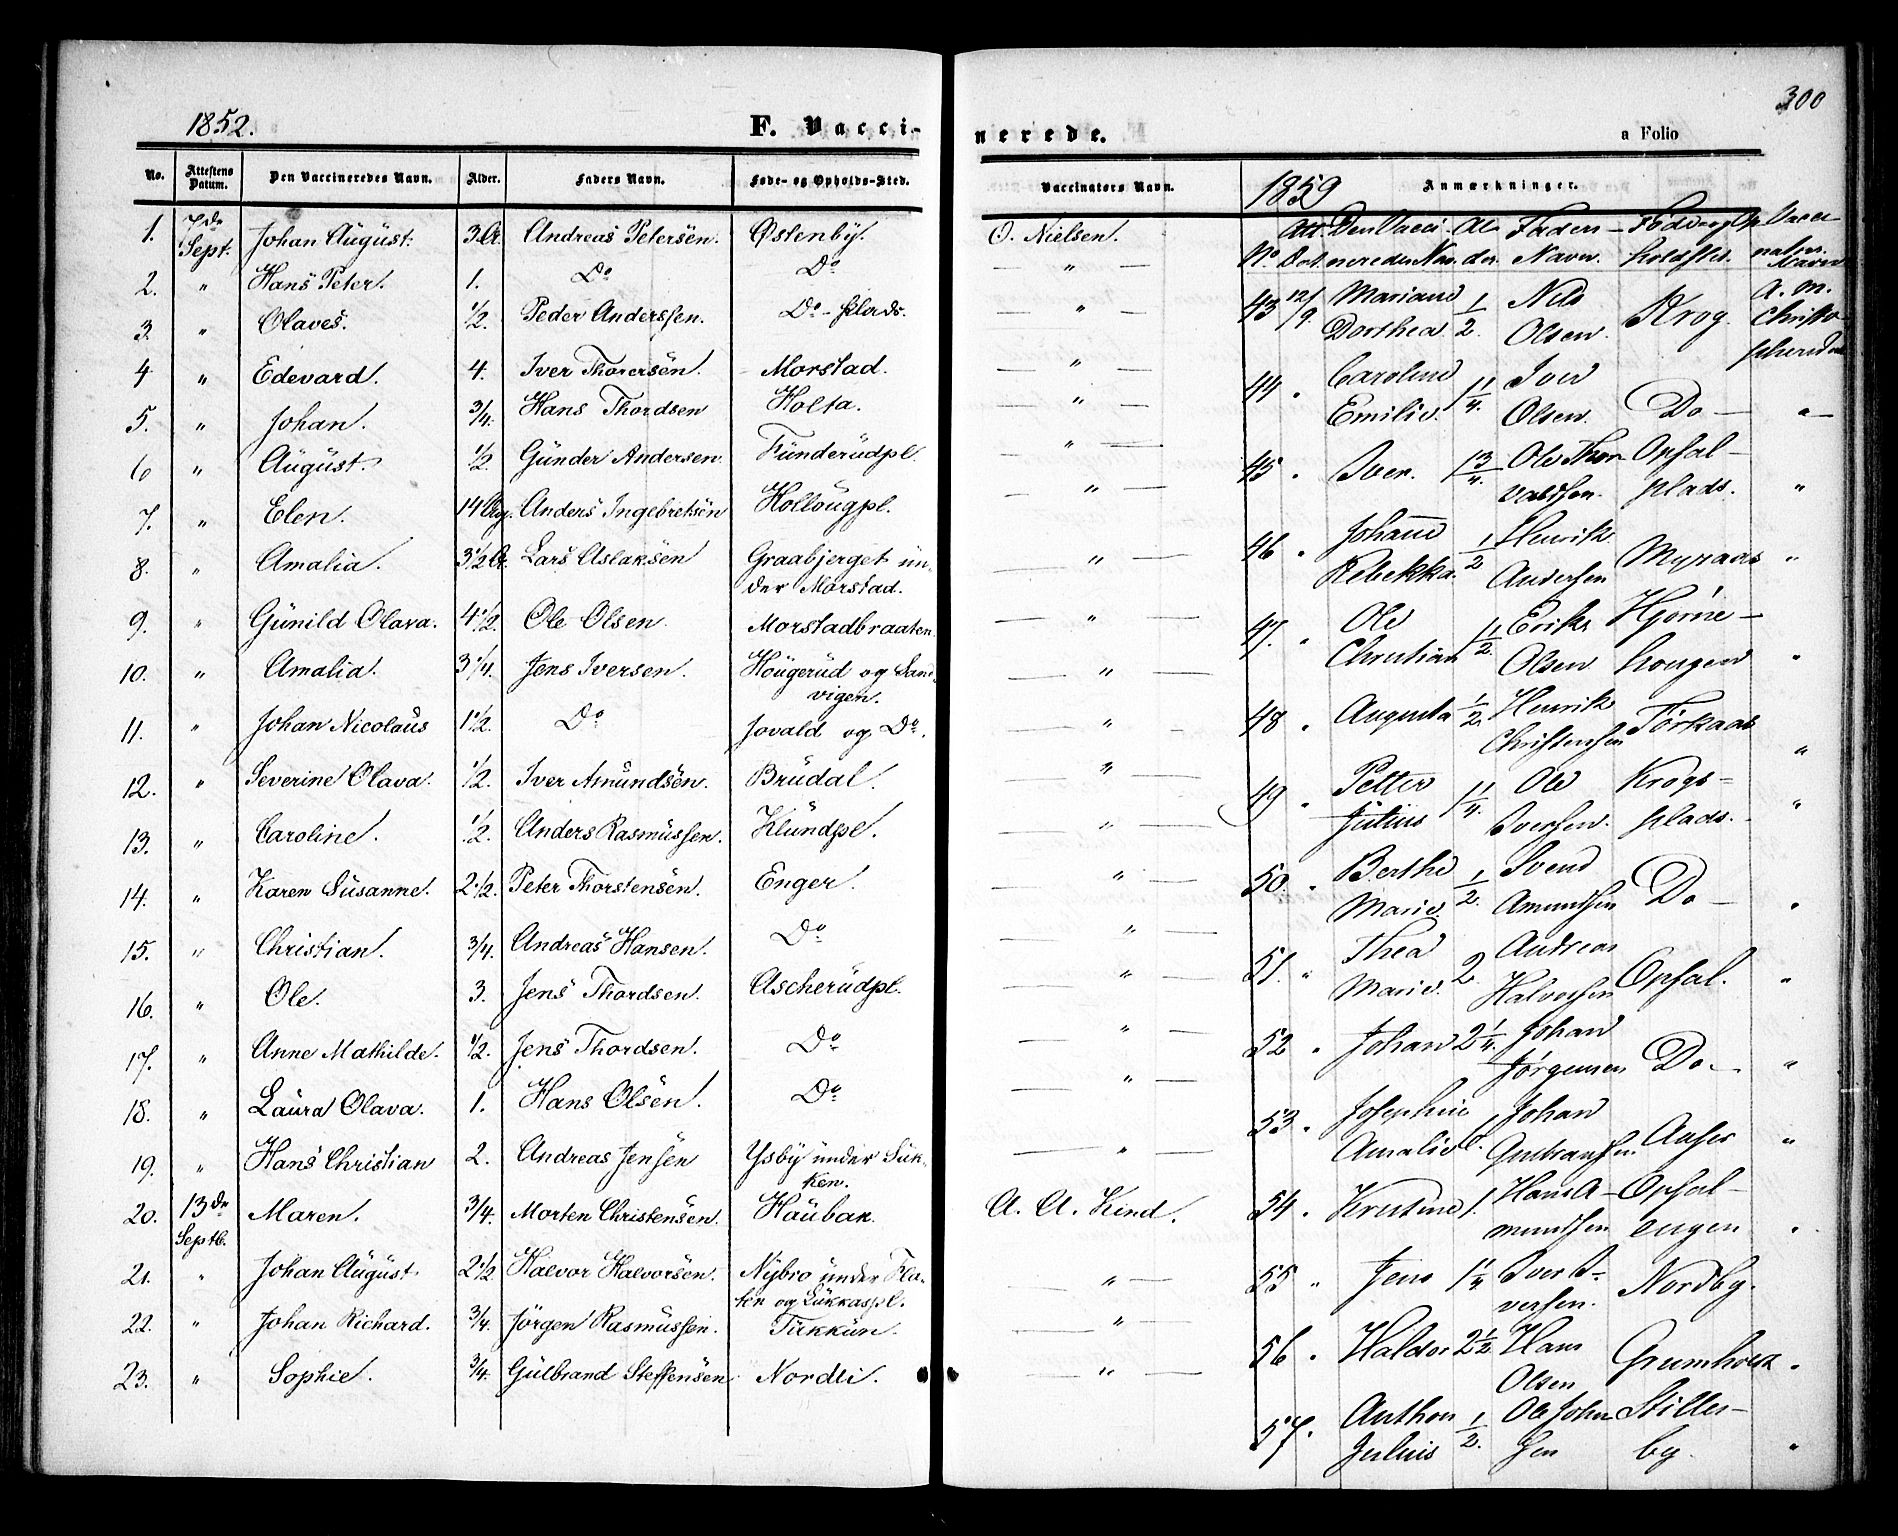 1852.
F. Vacci-
No. Attestens Datum. Den Vaccineredes Navn. Alder. Faders Navn. Føde- og Opholds-Sted.
1. 7de Sept. Johan August. 3 Ar Andreas Petersen. Østenby.
2. " Hans Peter. 1. Do Do
3. " Olaves. 1/2. Peder Anderssen. Do-Plads.
4 " Edevard. 4. Iver Thorersen. Morstad.
5. " Johan. 3/4. Hans Thordsen Holta.
6 " August. 1/2 Gunder Andersen. Funderudpl.
7. " Elen. 14 Anders Ingebretsen Hollougpl.
8. " Amalia. 3 1/2 Lars Aslaksen Graabjerget un-
der Morstad.
9. " Gunild Olava. 4 1/2. Ole Olsen Morstadbraaten
10. " Amalia. 3 1/4. Jens Iversen. Hougerud og Sand-
vigen.
11. " Johan Nicolaus 1 1/2. Do Jovald og Do.
12. " Severine Olava. 1/2. Iver Amundsen. Brudal.
13. " Caroline. 1/2. Anders Rasmussen. Klundpl.
14. " Karen Susanne. 2 1/2. Peter Thorstensen. Enger.
15. " Christian. 3/4. Andreas Hansen. Do
16. " Ole. 3. Jens Thordsen. Ascherudpl.
17. " Anne Mathilde. 1/2. Jens Thordsen. Do
18. " Laura Olava. 1. Hans Olsen. Do
19. " Hans Christian 2. Andreas Jensen Ysby under Suk-
ken.
20. 13de Septb. Maren. 3/4. Morten Christensen. Haubak.
21. " Johan August 2 1/2 Halvor Halvorsen. Nybro under Fla-
ten og Lukkaspl.
22. " Johan Richard. 3/4. Jörgen Rasmussen. Tukkun.
23. " Sophie. 3/4. Gulbrand Steffensen. Nordli.
300
nerede.
a Folio
Vaccinators Navn. Anmærkninger.
1859
O. Nielsen.
A. A. Kind.
No Att. Dat. Den Vacci-neredes Nav. Al-der. Faders Navn. Født og Op-holdsted. Vacci-nators Navn
43 12/9. Mariane Dorthea 1/2. Nils Olsen. Krog. A. M. Christo-phersen
44 " Caroline Emilie. 1 1/4. Iver Olsen. Do - " -
45 " Iver. 1 3/4. Ole Thor-valdsen. Opsal-plads. "
46 " Johanne Rebekka. 1/2 Henrik Andersen Myraas "
47. " Ole Christian 1 1/2. Eriks Olsen Hjørne-hougen "
48 " Augusta 1/2. Henrik Christensen Törkaas "
49 " Petter Julius 1 1/4. Ole Iversen. Krogs-plads. "
50. " Berthe Marie. 1/2. Svend Amundsen Do - "
51. " Thea Marie. 2. Andreas Halvorsen Opsal. "
52 " Johan 2 1/4. Johan Jørgensen Do. - "
53 " Josephine Amalie 1. Johan Gudbransen. "
54 " Kristine 1. Hans A-mundsen Opsal-engen "
55 " Jens 1 1/4 Iver I-versen. Nordby.
56 " Haldor 2 1/2 Hans Olsen "
57. " Anthon Julius 1/2. Ole John-sen Stiller-by. "